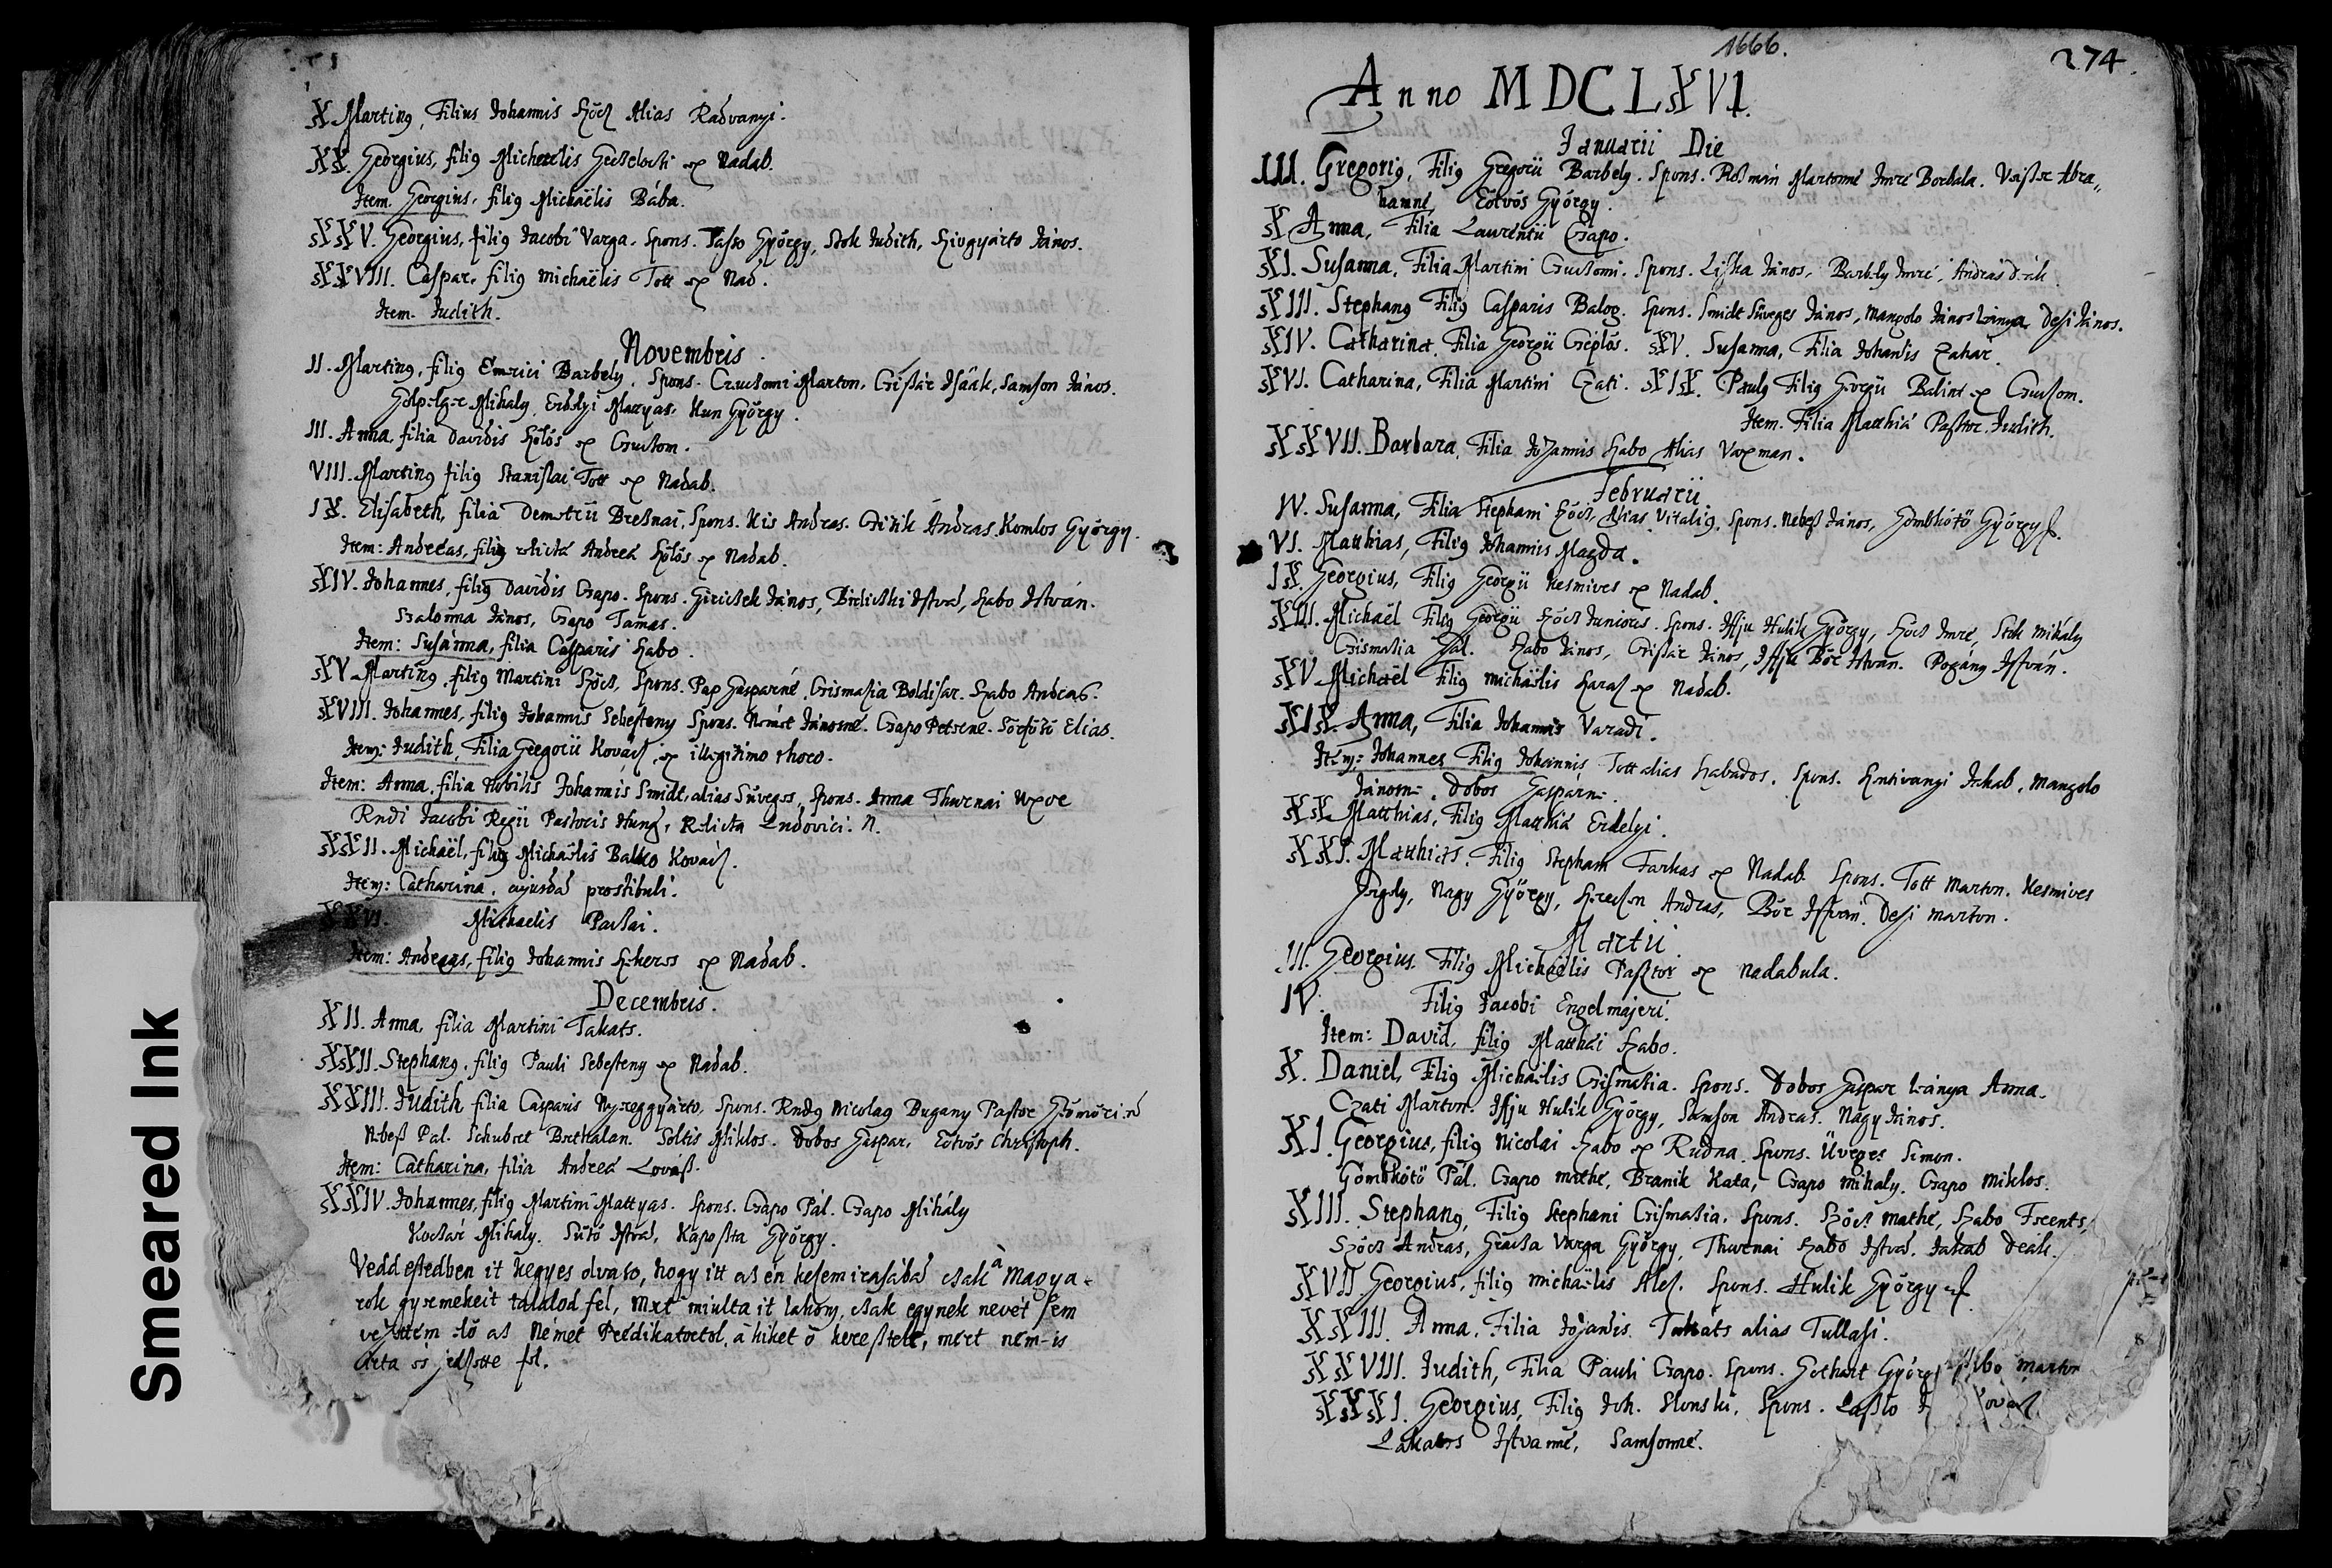 Marting, Filius Johannis Szöcz Alias Radvanyi.
XX. Georgius, filig Michaelis ex Nadab.
Item. Georgius, filig Michaëlis Bába.
XXV. Georgius, filig Jacobi Varga. Spons. György, Stok Judith, Szivgyarto János.
XXVIII. Caspar, filig Michaëlis Tott ex Nad.
Item. Judith.
Novembris.
II. Marting, filig Emrici Barbely. Spons. Marton, Isáak, Samson János.
Mihaly, Erdelyi Mattyas, Kun György.
III. Anna, filia Davidis ex
VIII. Marting filig Stanislai Tott ex Nadab.
IX. Elisabeth, filia Demetrii Spons. Kis Andras. Andras. Komlos György.
Item: Andreas, filig relicta Andreä ex Nadab.
XIV. Johannes, filig Davidis Czapo. Spons. János, Istvá, Szabo István.
Szalonna János, Czapo Tamas.
Item: Susánna, filia Casparis Szabo.
XV Marting, filig Martini Szöcz, Spons. Pap Gasparné, Boldisar. Szabo Andras.
XVIII. Johannes, filig Johannis Sebesteny Spons. Jánosné. Czapo Petrene. Elias.
Item: Judith, Filia Gregorii Kovácz, ex illegitimo thoro.
Item: Anna, filia Nobilis Johannis Smidt, alias Süveges, Spons. Anna Thurnai Uxor
Rndi Jacobi Regii Pastoris Hung, Relicta Ludovici. N.
XXII. Michaël, filig Michaëlis Balko Kovácz.
Item: Catharina, prostibuli.
XXVI. Michaelis
Item: Andreas, filig Johannis ex Nadab.
Decembris.
XII. Anna, filia Martini Takats.
XXII. Stephang, filig Pauli Sebesteny ex Nadab.
XXIII. Judith filia Casparis Nyereggyarto, Spons. Rndg Nicolag Bugany Pastor
Pal. Schubert Soltis Miklos. Dobos Gaspar, Eötvös Christoph.
Item: Catharina, filia Andreä Lováß.
XXIV. Johannes, filig Martini Mattyas. Spons. Czapo Pál. Czapo Mihály
Mihaly. Sütö Istvá, Kaposzta György.
Vedd eßedben it kegyes olvaso, hogy itt az én kezem irasábá csak à Magya-
rok gyermekeit talalod fel, Mert miulta it lakom, csak egynek nevét sem
vehettem elö az Német Predikatortol, à kiket ö kereßtelt, mert nem-is
irta
1666.
274.
Anno MDCLXVI.
Januarii Die
III. Gregorig, Filig Gregorii Barbely. Spons. Martonné Imre Borbala. Abra„
hamné, Eötvös György.
X Anna, Filia Laurentii Czapo.
XI. Susanna, Filia Martini Spons. Liska János, Barbely Imré, András Deák
XIII. Stephang Filig Casparis Balog. Spons. Smidt Süveges János, Mangolo János Leánya, Desi János.
XIV. Catharina, Filia Georgii Cseplös. XV. Susanna, Filia Johanis
XVI. Catharina, Filia Martini Czati. XIX. Paulg Filig Georgii Balint ex
Item. Filia Matthiä Pasztor. Judith.
XXVII. Barbara, Filia Johannis Szabo Alias Vaxman.
Februarii
IV. Susanna, Filia Stephani Szöcz, Alias Vitalig, Spons. János, Gombkötö György
VI. Matthias, Filig Johannis Magda.
IX. Georgius, Filig Georgii Kesmives ex Nadab.
XIII. Michaël Filig Georgii Szöcz Junioris. Spons. Iffju Hulik György, Szöcz Imré, Stok Mihály
Pal. Szabo János, János, Iffju Bör István. Pogány István.
XV Michaël Filig Michaëlis ex Nadab.
XIX. Anna, Filia Johannis Varadi.
Item: Johannes Filig Johannis Tott alias Szabados. Spons. Szentivanyi Jakab, Mangolo
Jánosné. Dobos Gasparné.
XX. Matthias, Filig Matthiä Erdelyi.
XXI. Matthias, Filig Stephani Farkas ex Nadab. Spons. Tott Marton. Kesmives
Gergely, Nagy György, Andras, Bör István. Desi Marton.
Martii
III. Georgius, Filig Michaëlis Pasztor ex Nadabula.
IV. Filig Jacobi Engelmajeri.
Item: David, filig Matthäi Szabo.
X. Daniel, Filig Michaëlis Csismazia. Spons. Dobos Gaspar Leánya Anna.
Czati Marton. Iffju Hulik György, Samson Andras. Nagy János.
XI. Georgius, filig Nicolai Szabo ex Rudna. Spons. Üveges Simon.
Gombkötö Pál. Czapo Mathé, Branik Kata, Czapo Mihaly. Czapo Miklos.
XIII. Stephang, Filig Stephani Csismazia. Spons. Szöcz Mathé, Szabo Ferents,
Szöcz Andras, Varga György, Thurnai Szabo Istvá. Jakab Deák.
XVII Georgius, filig Michaëlis Spons. Hulik György
XXIII. Anna, Filia Johanis Takáts alias Tullasi.
XXVIII. Judith, Filia Pauli Czapo. Spons. Gothart György Marton
XXXI. Georgius, Filig Joh. Spons. Laszlo
Lakatos Istvanné, Samsonné.
Smeared Ink